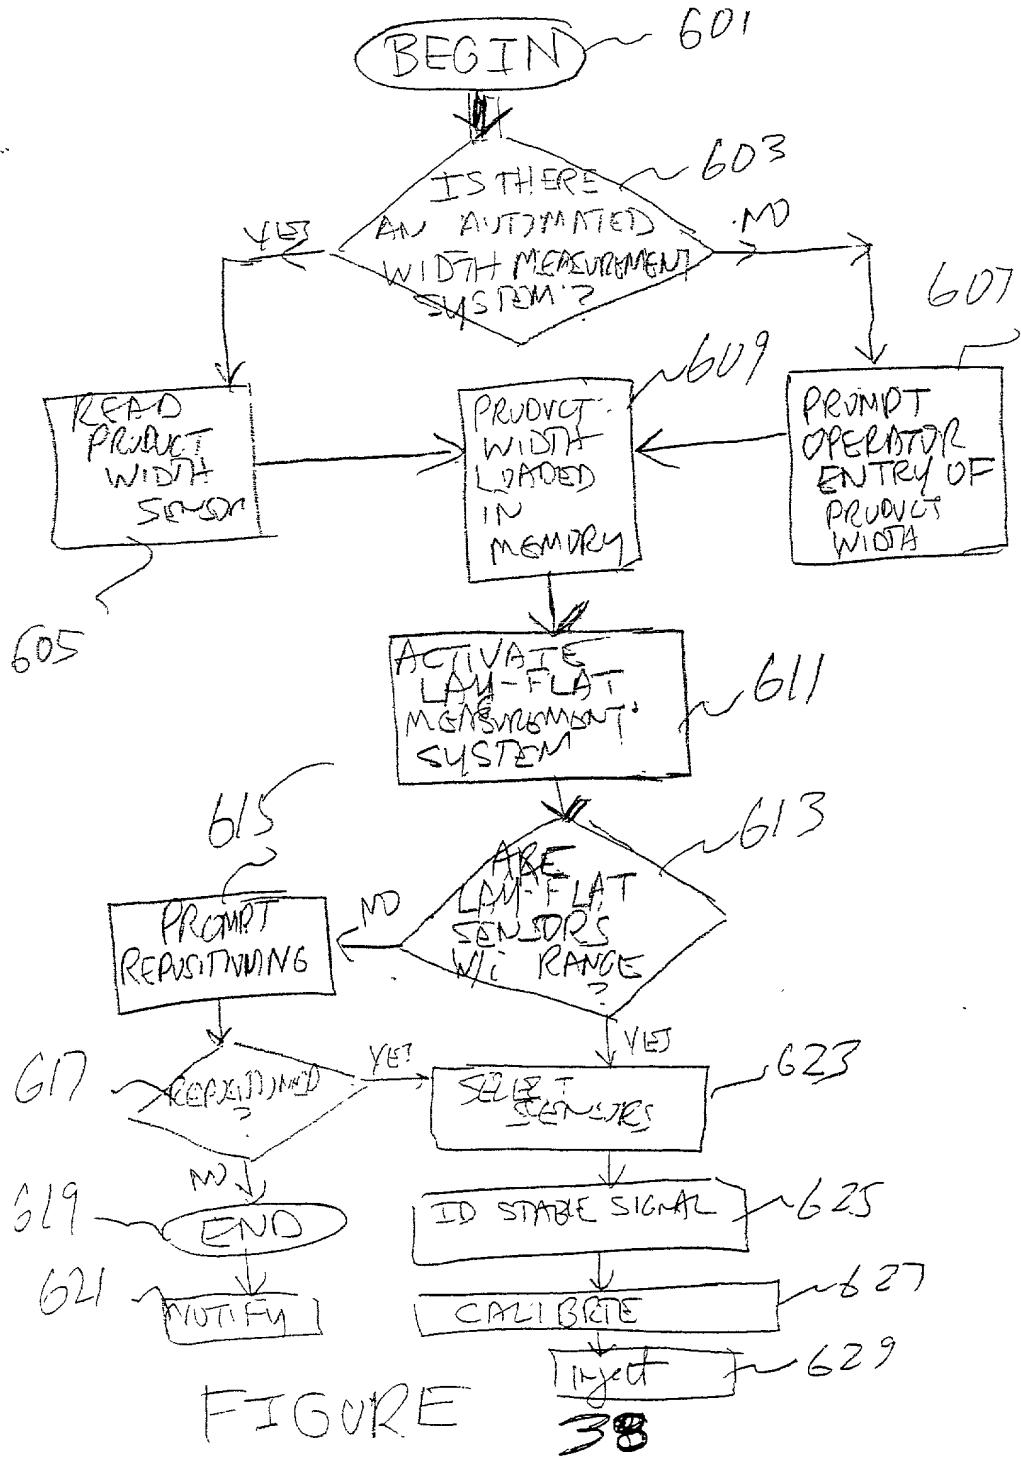 BEGIN
601
IS THERE
AN AUTOMATED
WIDTH MEASUREMENT
SYSTEM?
603
YES
NO
607
609
READ
PRODUCT
WIDTH
SENSOR
PRODUCT
WIDTH
LOADED
IN
MEMORY
PROMPT
OPERATOR
ENTRY OF
PRODUCT
WIDTH
605
ACTIVATE
LAY-FLAT
MEASUREMENT
SYSTEM
611
615
613
ARE
LAY-FLAT
SENSORS
W/i RANGE
?
NO
PROMPT
REPOSITIONING
YES
617
REPOSITIONED
?
YES
SELECT
SENSORS
623
NO
619
END
ID STABLE SIGNAL
625
621
NOTIFY
CALIBRTE
627
inject
629
FIGURE
38